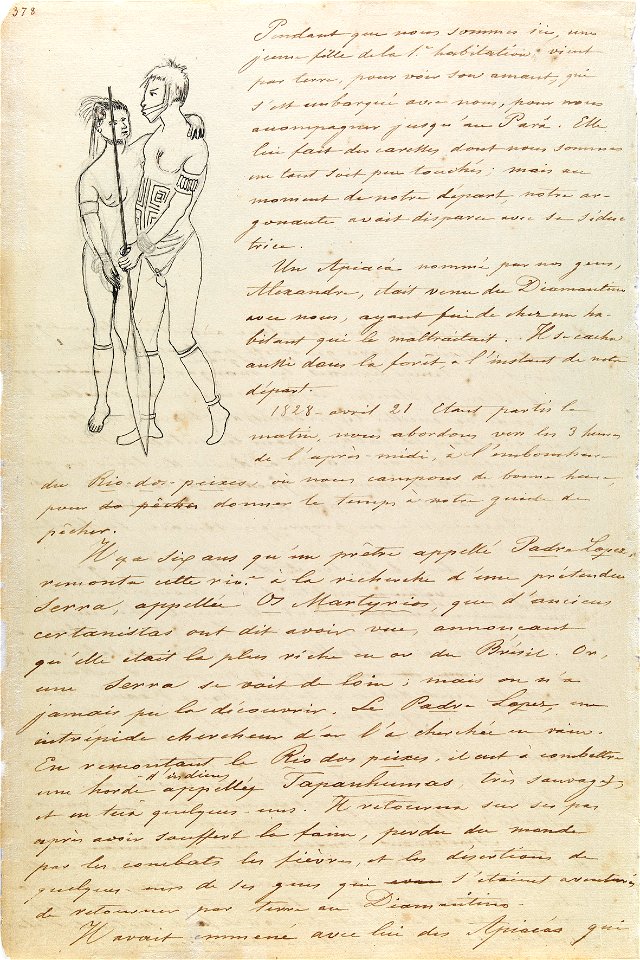 378
Pendant que nous sommes ici, une
jeune fille de la 1.e habitation vient
par terre, pour voir son amant, qui
s'est embarqué avec nous, pour nous
accompagner jusqu'au Pará. Elle
lui fait des caresses dont nous sommes
un tant soit peu touchés; mais au
moment de notre départ, notre ar-
gonaute avait disparu avec sa séduc
trice.
Un Apiacá nommé par nos gens,
Alexandre, était venu du Diamantino
avec nous, ayant fui de chez un ha-
bitant qui le maltraitait. Il se cacha
aussi dans la forêt, à l'instant de notre
départ.
1828 - avril 21 Etant partis le
matin, nous abordons vers les 3 heures
de l'après-midi, à l'embouchure
du Rio-dos-peixes où nous campons de bonne heure
pour donner le temps à notre guide de
pêcher.
Il y a six ans qu'un prêtre appellé Padre Lopez,
remonta cette riv.e à la richerche d'une prétendue
Serra, appellée Os Martyrios, que d'anciens
certanistas ont dit avoir vue, annonçant
qu'elle était la plus riche en or du Brésil. Or,
une Serra se voit de loin; mais on n'a
jamais pu la découvrir. Le Padre Lopez, en
intrépide chercheur d'or l'a cherchée en vain.
En remontant le Rio dos peixes, il eut à combattre
une horde d'indiens appellés Tapanhumas, très sauvages,
et en tua quelques-uns. Il retourna sur ses pas
après avoir souffert la faim, perdu du monde
par les combats les fièvres, et les désertions de
quelques-uns de ses gens qui s'étaient aventurés
de retourner par terre au Diamantino.
Il avait emmené avec lui des Apiacás qui